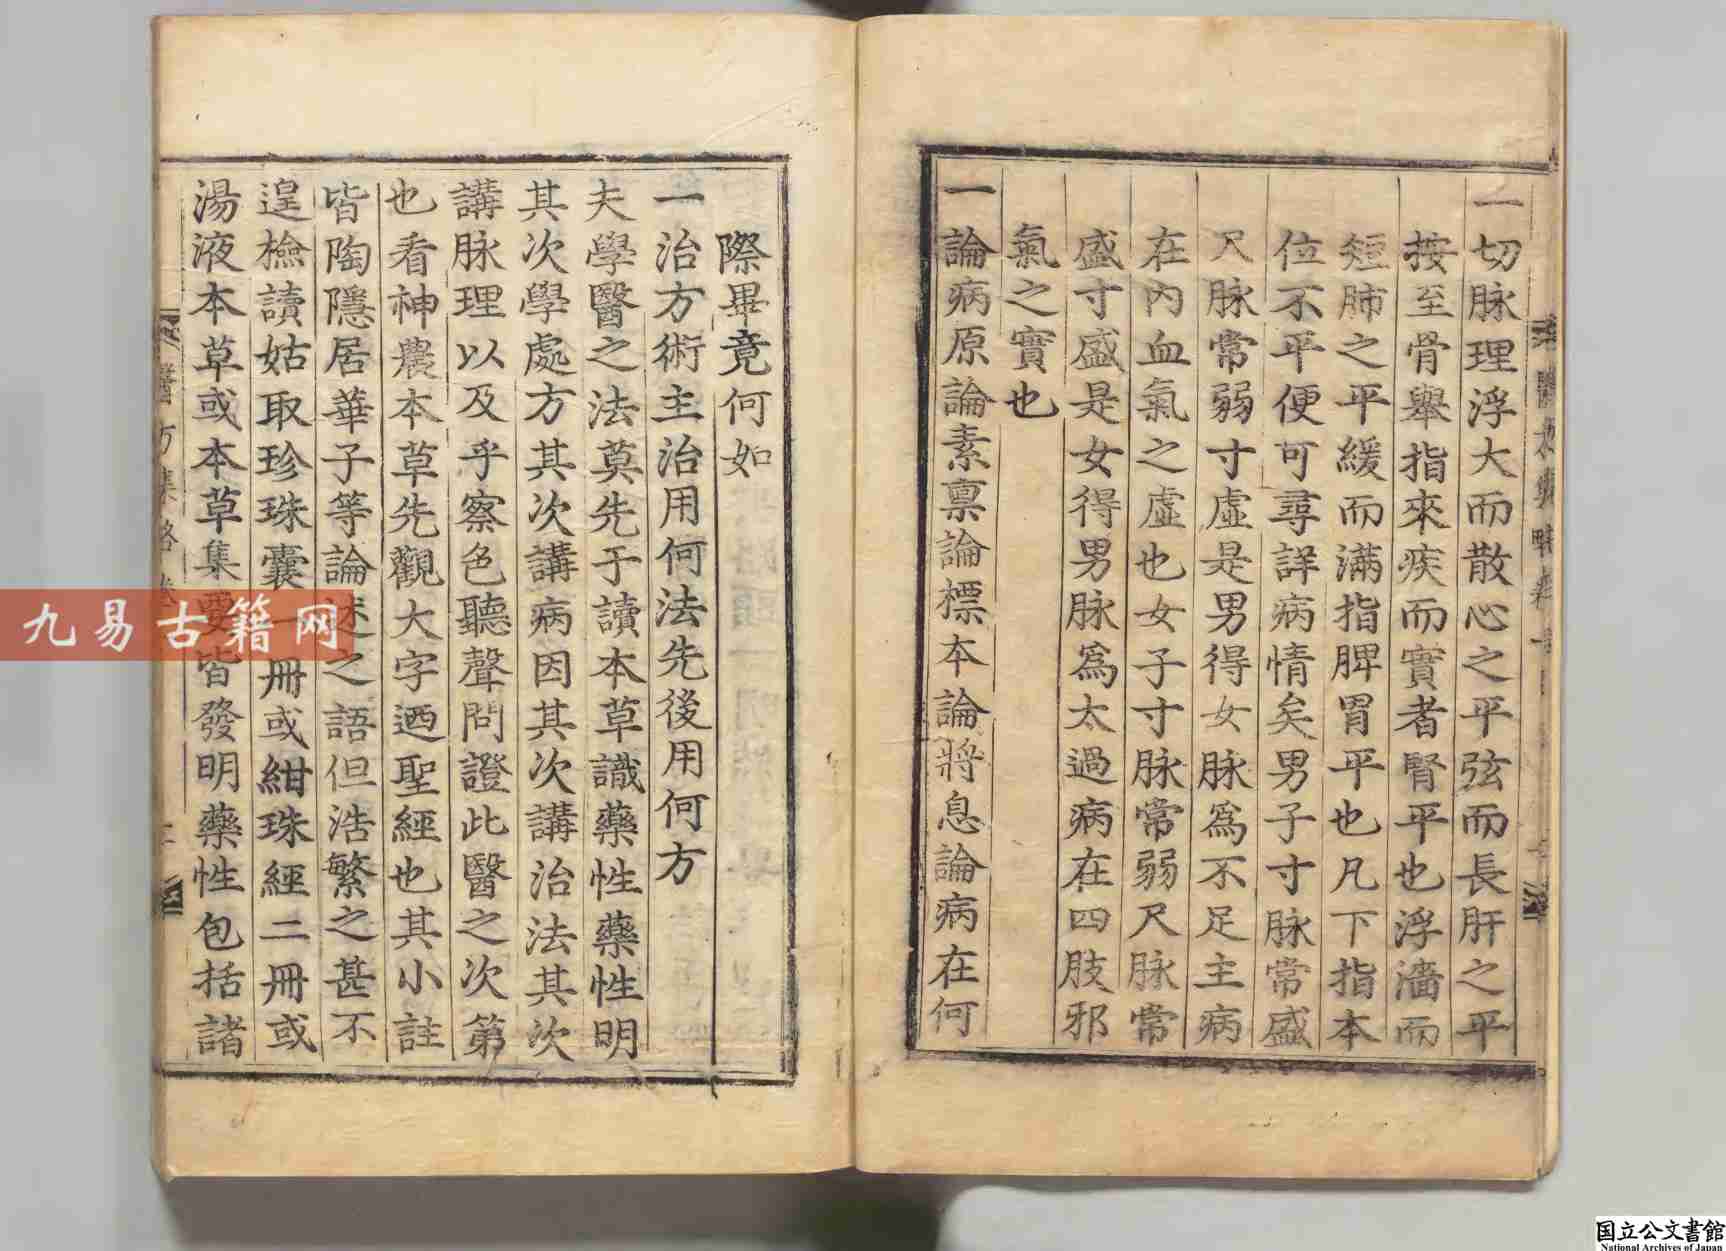 一切脉理浮大而散心之平弦而長肝之平
按至骨舉指來疾而實者腎平也浮濇而
短肺之平緩而滿指脾胃平也凡下指本
位不平便可尋詳病情矣男子寸脉常盛
尺脉常弱寸虛是男得女脉爲不足主病
在內血氣之虛也女子寸脉常弱尺脉常
盛寸盛是女得男脉爲太過病在四肢邪
氣之實也
一論病原論素禀論標本論將息論病在何
際畢竟何如
一治方術主治用何法先後用何方
夫學醫之法莫先于讀本草識藥性藥性明
其次學處方其次講病因其次講治法其次
講脉理以及乎察色聽聲問證此醫之次第
也看神農本草先觀大字迺聖經也其小註
皆陶隱居華子等論述之語但浩繁之甚不
遑檢讀姑取珍珠囊一冊或紺珠經二冊或
湯液本草或本草集要皆發明藥性包括諸
醫方集略
九易古籍网
国立公文書館
National Archives of Japan